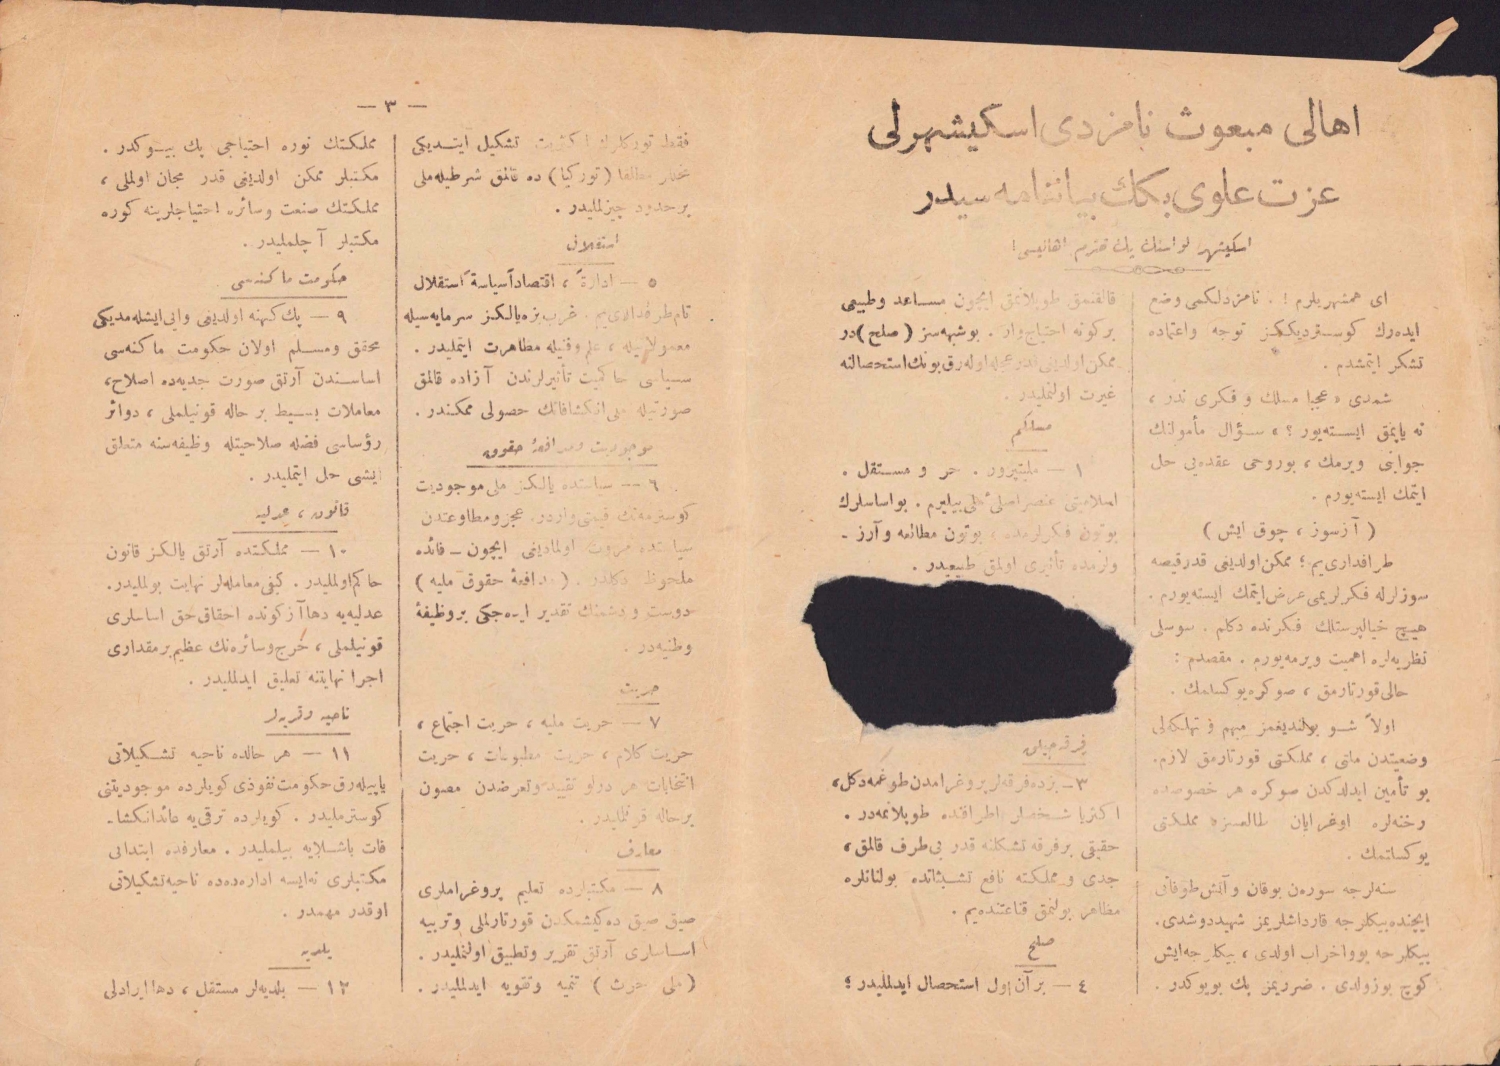 اهالی مبعوث نامزدی اسکیشهرلی
عزت علوی بکك بیاننامه سیدر
اسکیشهر لواسنك پك محترم اهالیسی!
ای همشهریلرم ! . نامزدلکمی وضع
ایده‌رك کوستردیککز توجه واعتماده
تشکر ایتمشدم .
شمدی « عجبا مسلك و فکری ندر ،
نه یاپمق ایسته‌یور ؟ » سؤال مأمولنك
جوابنی ویرمك ، بوروحی عقده‌یی حل
ایتمك ایسته‌یورم .
( آزسوز ، چوق ایش )
طرافداری‌یم ؛ ممکن اولدیغی قدر قیصه
سوزلرله فکرلریمی عرض ایتمك ایسته‌یورم .
هیچ خیالپرستلك فکرنده دکلم . سوسلی
نظریه‌لره اهمیت ویرمه‌یورم . مقصدم :
حالی قورتارمق ، صوکره یوکسلمك .
اولاً شو بولندیغمز مبهم و تهلکه‌لی
وضعیتدن ملتی ، مملکتی قورتارمق لازم .
بو تأمین ایدلدکدن صوکره هر خصوصده
رخنه‌لره اوغرایان طالعسز مملکتی
یوکساتمك .
سنه‌لرجه سوره‌ن بوقان و آتش طوفانی
ایچنده بیکلرجه قارداشلریمز شهید دوشدی .
بیکلرجه یووا خراب اولدی ، بیکلرجه ایش
کوچ بوزولدی . ضرریمز پك بویوکدر .
قالقنمق طوپلانمق ایچون مساعد وطبیعی
برکونه احتیاج وار . بوشبهه‌سز ( صلح ) در
ممکن اولدیغی قدر عجله اوله‌رق بونك استحصالنه
غیرت اولنملیدر .
مسلکم
١ — ملیتپرور . حر و مستقل .
اسلامیتی عنصر اصلیٔ ملی بیلیرم . بو اساسلرك
بوتون فکرلرمده ، بوتون مطالعه وآرز ـ
ولرمده تأثیری اولمق طبیعیدر .
فرقه‌جیلق
٣ ـ بزده فرقه‌لر پروغرامدن طوغمه دکل ،
اکثریا شخصلر اطرافنده طوپلانمه‌در .
حقیقی بر فرقه تشکلنه قدر بی طرف قالمق ،
جدی و مملکته نافع تشبثاتده بولنانلره
مظاهر بولنمق قناعتنده‌یم .
صلح
٤ — برآن اول استحصال ایدلملیدر ؛
— ٣ —
فقط تورکلرك اکثریت تشکیل ایتدیکی
محللر مطلقا ( تورکیا ) ده قالمق شرطیله ملی
بر حدود چیزلملیدر .
استقلال
٥ — ادارةً ، اقتصاداً سیاسةً استقلال
تام طرفداری‌یم . غرب بزه یالکز سرمایه‌سیله
معمولاتیله ، علم وفنیله مظاهرت ایتملیدر .
سیاسی حاکمیت تأثیرلرندن آزاده قالمق
صورتیله ملی انکشافاتك حصولی ممکندر .
موجودیت ومدافعهٔ حقوق
٦ — سیاستده یالکز ملی موجودیت
کوسترمه‌نك قیمتی واردر . عجز ومطاوعتدن
سیاستده مروت اولمادیغی ایچون ـ فائده
ملحوظ دکلدر . ( مدافعهٔ حقوق ملیه )
دوست و دشمنك تقدیر ایده‌جکی بر وظیفهٔ
وطنیه‌در .
حریت
٧ — حریت ملیه ، حریت اجتماع ،
حریت کلام ، حریت مطبوعات ، حریت
انتخابات هر درلو تقیید وتعرضدن مصون
بر حاله قونلملیدر .
معارف
٨ — مکتبلرده تعلیم پروغراملری
صیق صیق ده‌کیشمکدن قورتارلملی وتربیه
اساسلری آرتق تقریر وتطبیق اولنملیدر .
( ملی حرث ) تنمیه وتقویه ایدلملیدر .
مملکتك نوره احتیاجی پك بیوکدر .
مکتبلر ممکن اولدیغی قدر مجان اولملی ،
مملکتك صنعت وسائره احتیاجلرینه کوره
مکتبلر آچلملیدر .
حکومت ماکنه‌سی
٩ — پك کهنه اولدیغی وایی ایشله‌مدیکی
محقق ومسلم اولان حکومت ماکنه‌سی
اساسندن آرتق صورت جدیه‌ده اصلاح ،
معاملات بسیط بر حاله قونیلملی ، دوائر
رؤساسی فضله صلاحیتله وظیفه‌سنه متعلق
ایشی حل ایتملیدر .
قانون ، عدلیه
١٠ — مملکتده آرتق یالکز قانون
حاکم اولملیدر . کیفی معامله‌لر نهایت بولملیدر .
عدلیه‌یه دها آز کونده احقاق حق اساسلری
قونیلملی ، خرج وسائره‌نك عظیم بر مقداری
اجرا نهایتنه تعلیق ایدلملیدر .
ناحیه وقریه‌لر
١١ — هر حالده ناحیه تشکیلاتی
یاپیله‌رق حکومت نفوذی کویلرده موجودیتنی
کوسترملیدر . کویلرده ترقی‌یه عائد انکشا ـ
فات باشلایه بیلملیدر . معارفده ابتدائی
مکتبلری نه‌ایسه اداره‌ده‌ده ناحیه تشکیلاتی
اوقدر مهمدر .
بلدیه
١٢ — بلدیه‌لر مستقل ، دها ایرادلی